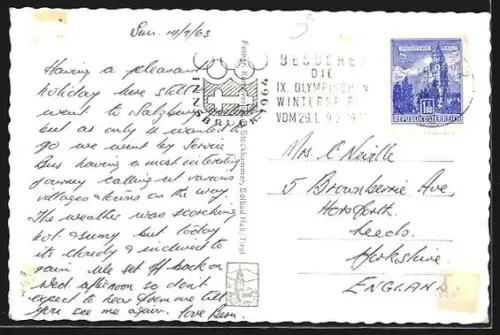 Sun. 14/7/63
Having a pleasant
holiday here still
went to Salzburg
but as only 4 wanted to
go we went by Service
Bus having a most interesting
journey calling at various
villages & towns on the way.
The weather was scorching
hot & sunny but today
its cloudy & inclined to
rain. We set off back on
Wed afternoon so dont
expect to hear from me till
you see me again. Love Bern.
INNSBRUCK 1964
BESUCHET
DIE
IX. OLYMPISCHEN
WINTERSPIELE
VOM 29.1.-9.2.1964
1.80
REPUBLIK ÖSTERREICH
Stockhammer, Solbad Hall/Tirol
Mrs C Neville
5 Brownberrie Ave
Horsforth
Leeds
Yorkshire
ENGLAND